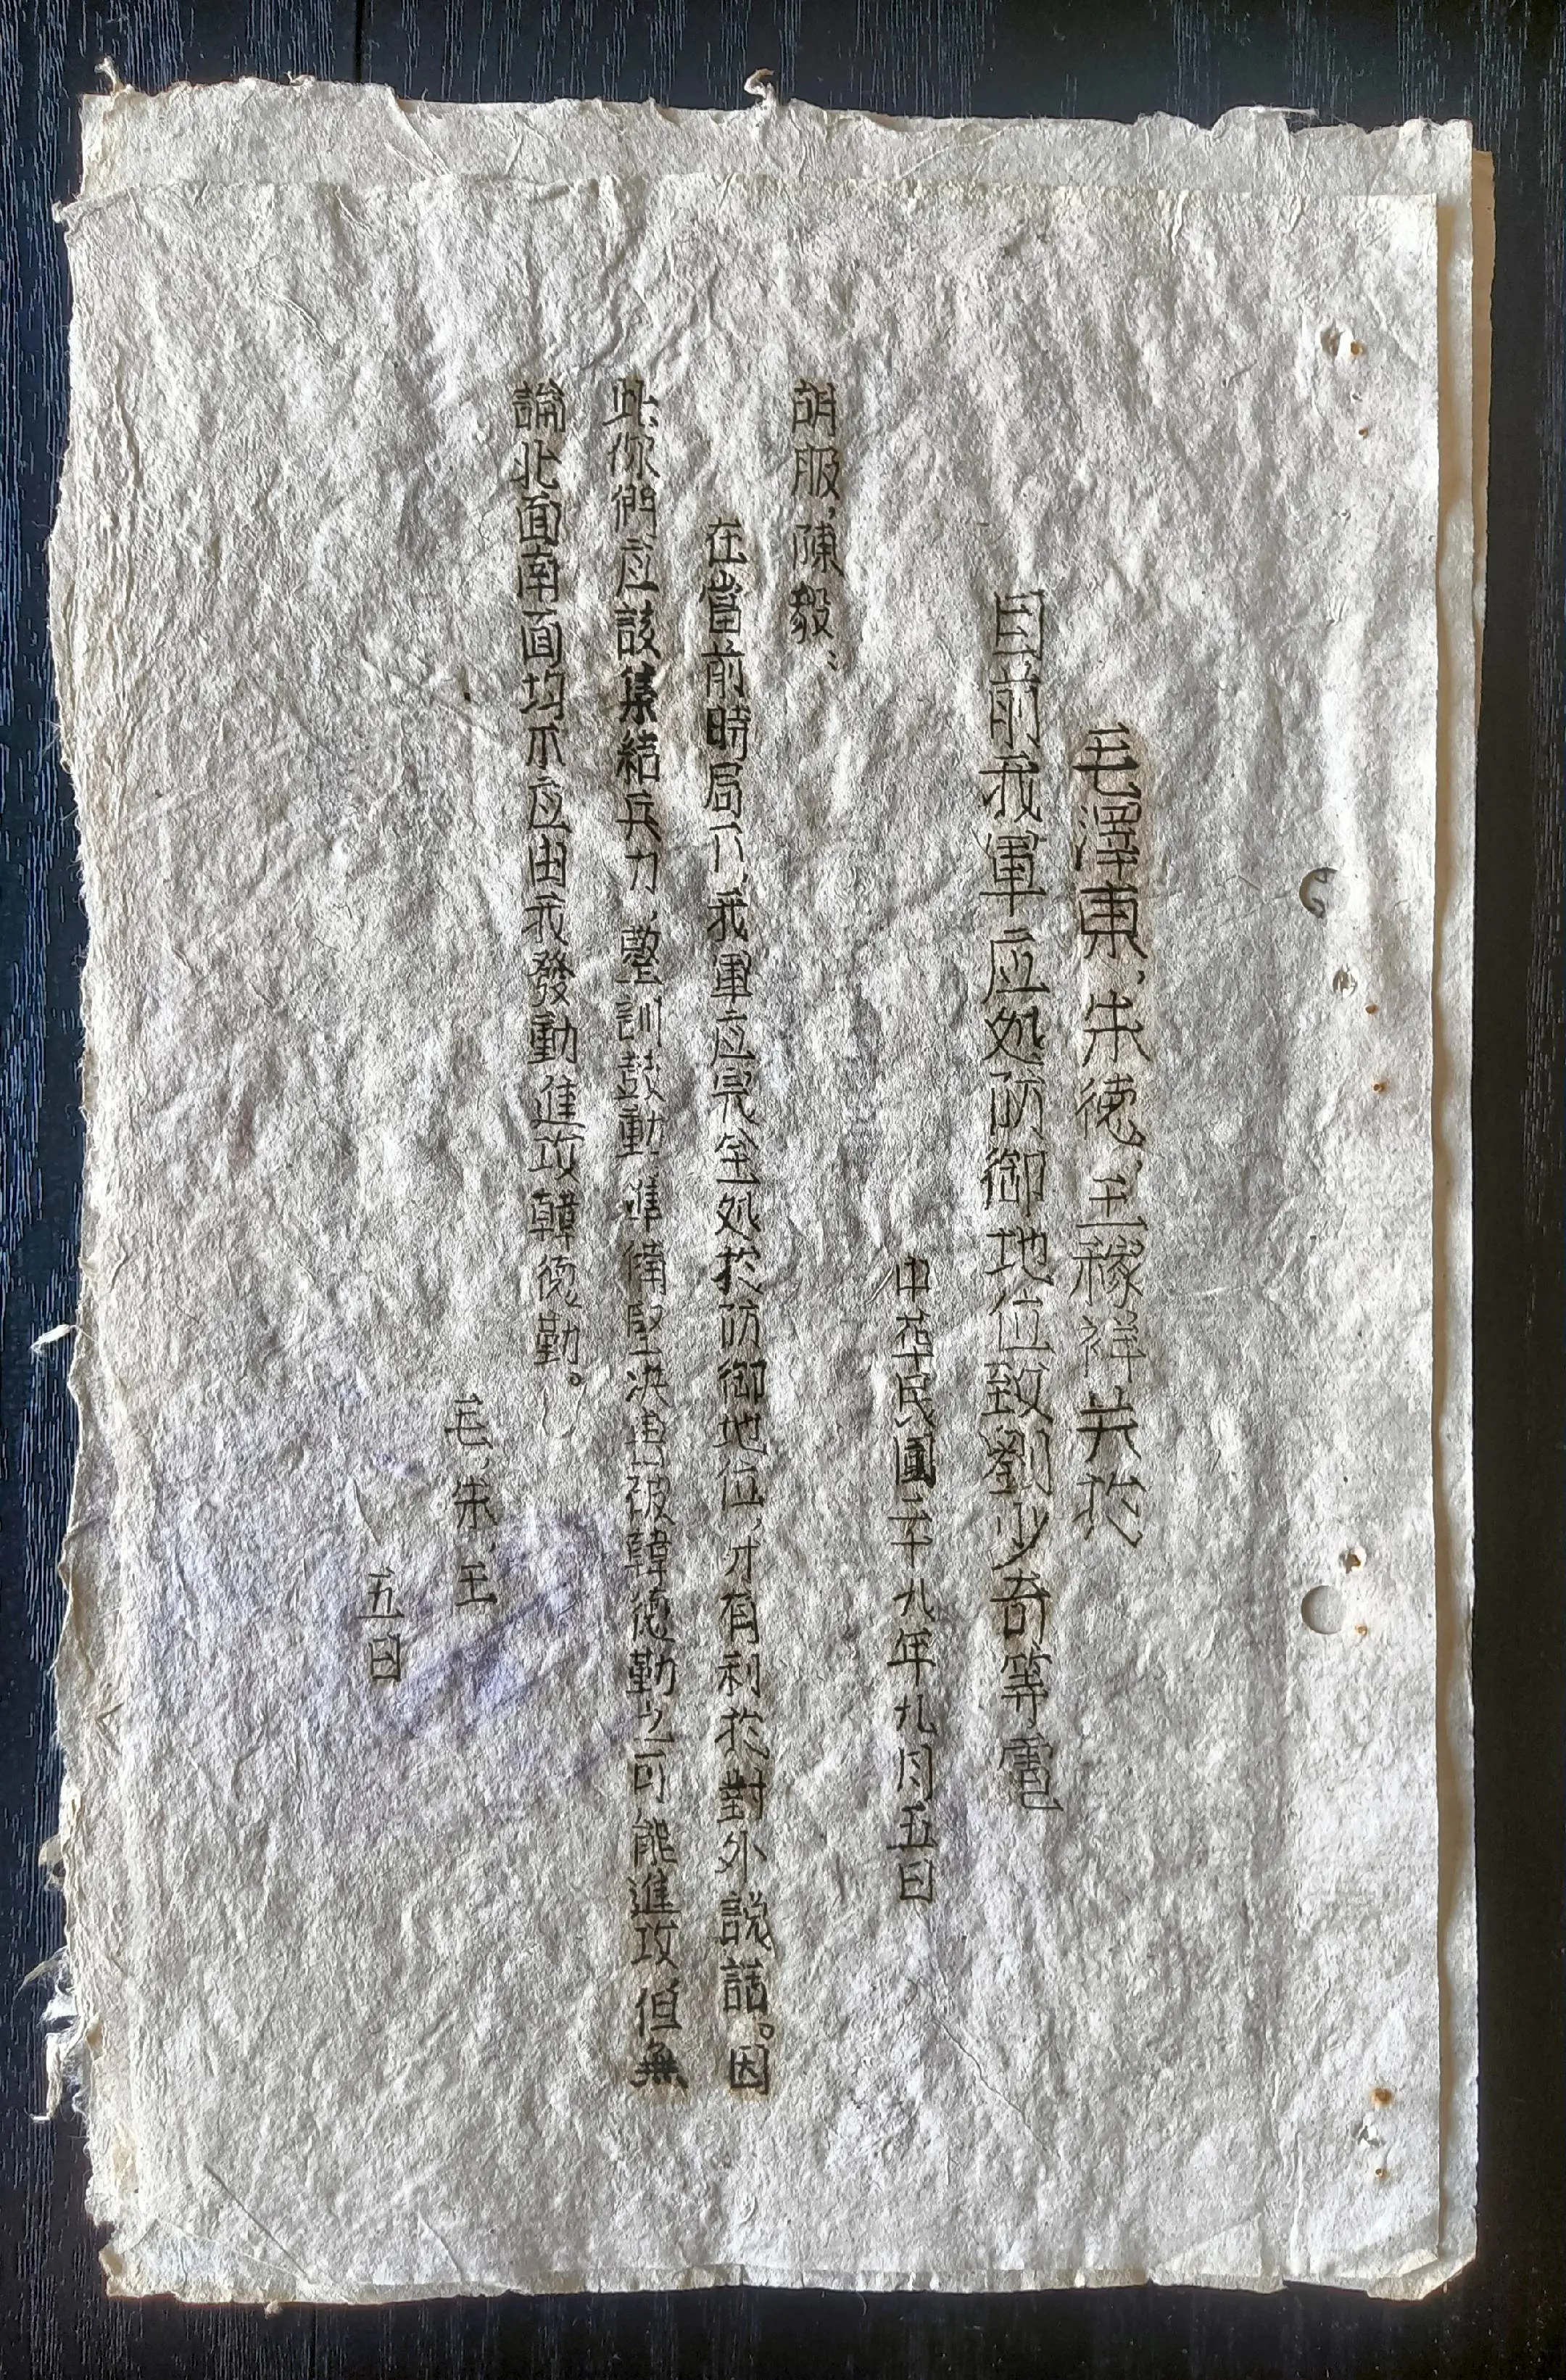 毛澤東、朱德、王稼祥关於
目前我軍应处防御地位致劉少奇等電
中华民國二十九年九月五日
胡服、陳毅：
在當前時局下，我軍应完全处於防御地位，才有利於對外説話。因
此你們应該集結兵力，整訓鼓動，準備堅决击破韓德勤之可能進攻，但無
論北面南面均不应由我發動進攻韓德勤。
毛、朱、王
五日